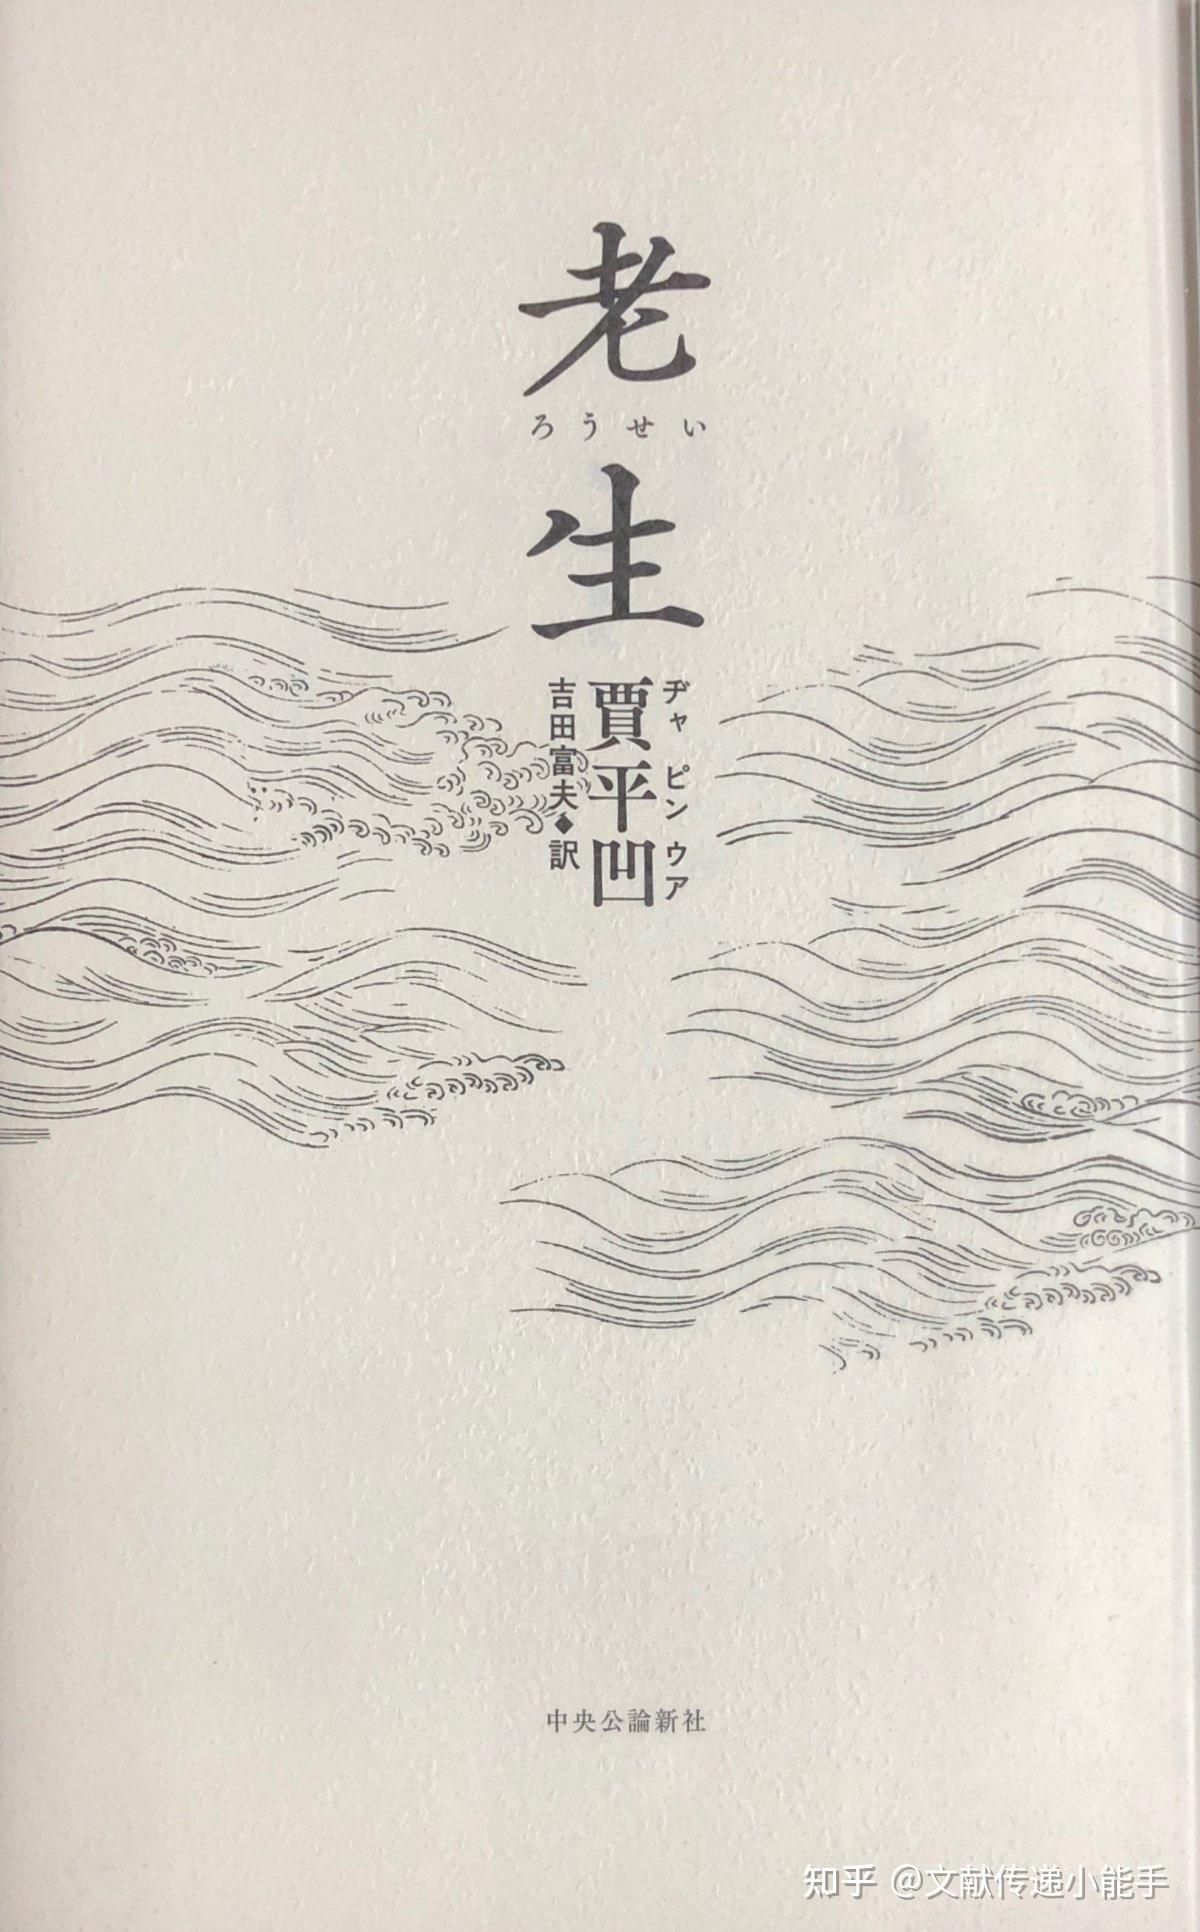 老
ろうせい
生
ヂャ ピン ウア
賈平凹
吉田富夫◆訳
中央公論新社
知乎 @文献传递小能手